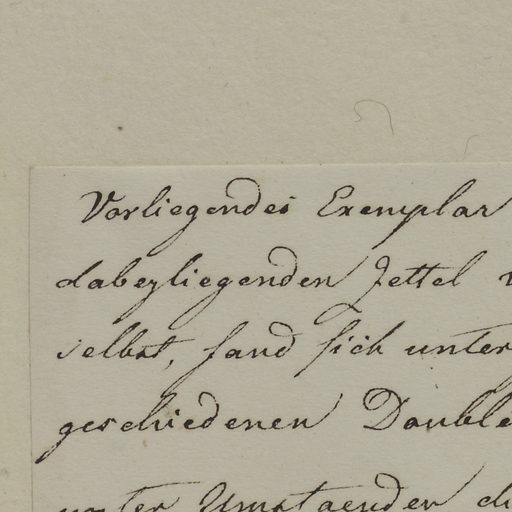 Vorliegendes Exemplar
dabeyliegenden Zettel
selbst, fand sich unter
geschiedenen Double
unter Umstaenden